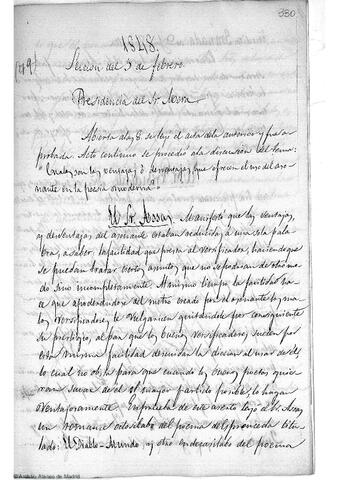 380
1848.
(nº 9)
Seccion del 3 de febrero.
Presidencia del Sr. Mora
Abierta a las 8. se leyó el acta de la anterior y fue a-
probada. Acto continuo se procedió a la discusion del tema:
"Cuales son las ventajas ó desventajas que ofrece el uso del aso-
nante en la poesia moderna?"
El Sr. Assas, Manifestó que las ventajas,
y desventajas del asonante estaban reducidas a una sola pala-
bra, a saber, la facilidad que presta al versificador, haciendo que
se puedan tratar ciertos asuntos que no se podrian de otro mo-
do sino incompletamente. Al mismo tiempo la facilidad ha-
ce que apoderandose del metro creado por el asonante los ma-
los versificadores, le vulgaricen quitandole por consiguiente
su prestigio, al par que los buenos versificadores suelen por
esta misma facilidad descuidar la diccion al usar de el,
lo cual no obsta para que cuando los buenos poetas quie-
ran sacar de el el mayor partido posible, lo hagan
ventajosamente. En prueba de este aserto leyó el Sr. Assas
un romance octosilabo del poema de Espronceda titu-
lado: El Diablo-Mundo, y otro endecasilabo del poema
© Archivo Ateneo de Madrid